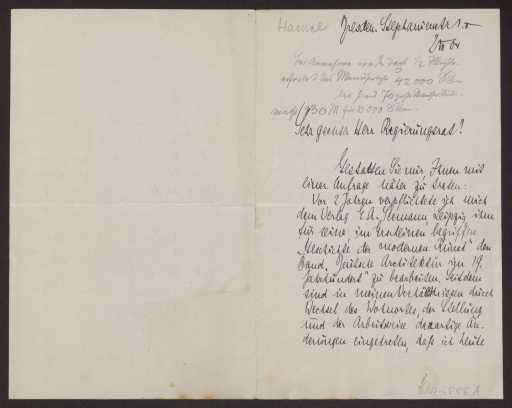 Haenel Dresden. Stephanienstr
Bei Annahme von
erfordert das Manuscript 42 000 Silben
10 000 Silben
Sehr geehrter Herr Regierungsrat!
Gestatten Sie mir, Ihnen mit
einer Anfrage näher zu treten:
Vor 2 Jahren verpflichtete ich mich
dem Verlag E. A. Seemann Leipzig ihm
für seine im Erscheinen begriffene
"Geschichte der modernen Kunst" den
Band "Deutsche Architektur im 19.
Jahrhundert" zu bearbeiten. Seitdem
sind in meinen Verhältnissen durch
Wechsel des Wohnortes, der Stellung
und der Arbeitsweise derartige Än-
derungen eingetreten, daß ich heute